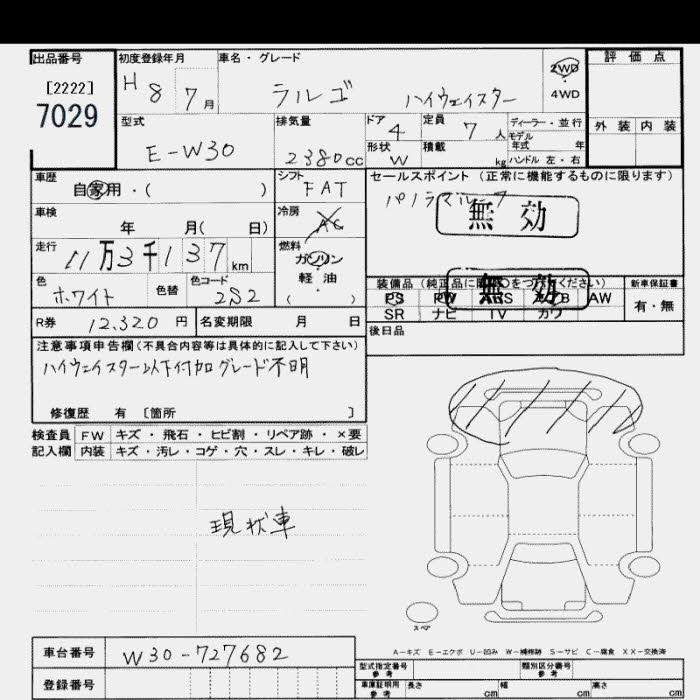 出品番号
[2222]
7029
初度登録年月
H 8 7 月
車名・グレード
ラルゴ ハイウェイスター
2WD
4WD
評価点
外装 内装
型式
E-W30
排気量
2380cc
ドア
4
定員
7 人
ディーラー・並行
モデル
年式 年
形状
W
積載
kg
ハンドル 左・右
車歴
自家用・( )
シフト
FAT
セールスポイント (正常に機能するものに限ります)
パノラマルーフ
無効
車検
年 月( 日)
冷房
AC
走行
11万3千137km
燃料
ガソリン
軽・油
( )
色
ホワイト
色替
色コード
2S2
装備品 (純正品に限り○をつけてください)
無効
新車保証書
PS PW ABS エアB AW
有・無
SR ナビ TV カワ
R券
12,320 円
名変期限 月 日
後日品
注意事項申告欄(不具合内容等は具体的に記入して下さい)
ハイウェイスター以下付加グレード不明
修復歴 有 〔箇所 〕
検査員 FW キズ・飛石・ヒビ割・リペア跡・×要
記入欄 内装 キズ・汚レ・コゲ・穴・スレ・キレ・破レ
現状車
スペア
A-キズ E-エクボ U-凹み W-補修跡 S-サビ C-腐食 XX-交換済
車台番号
W30-727682
登録番号
型式指定番号
参考
類別区分番号
参考
車庫証明用
参考
長さ cm 幅 cm 高さ cm